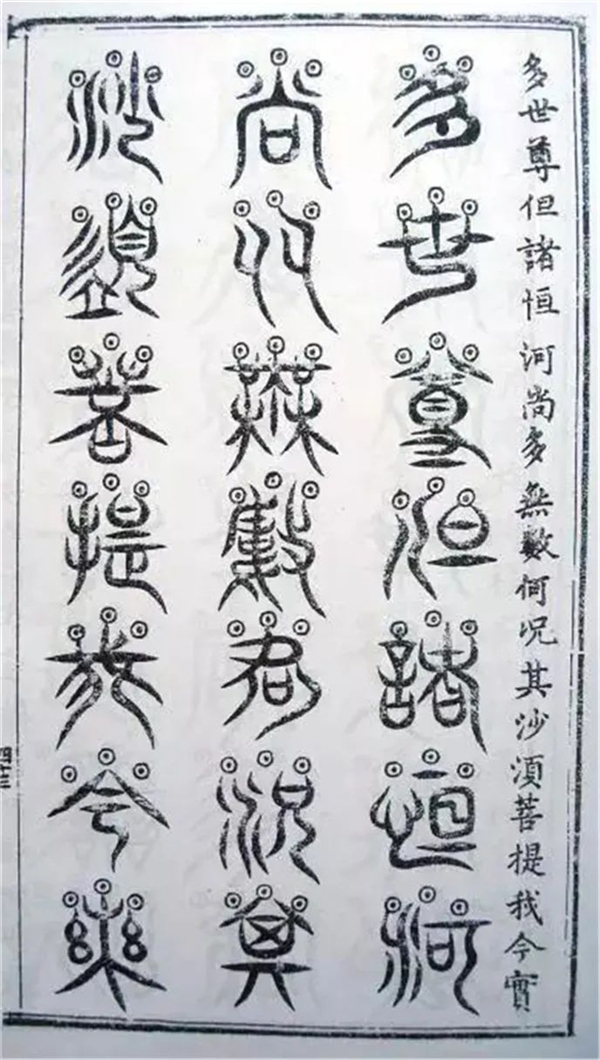 多世尊但諸恒河尚多無數何况其沙湏菩提我今實
多世尊但諸恒河
尚多無數何況其
沙須菩提我今實
四十三